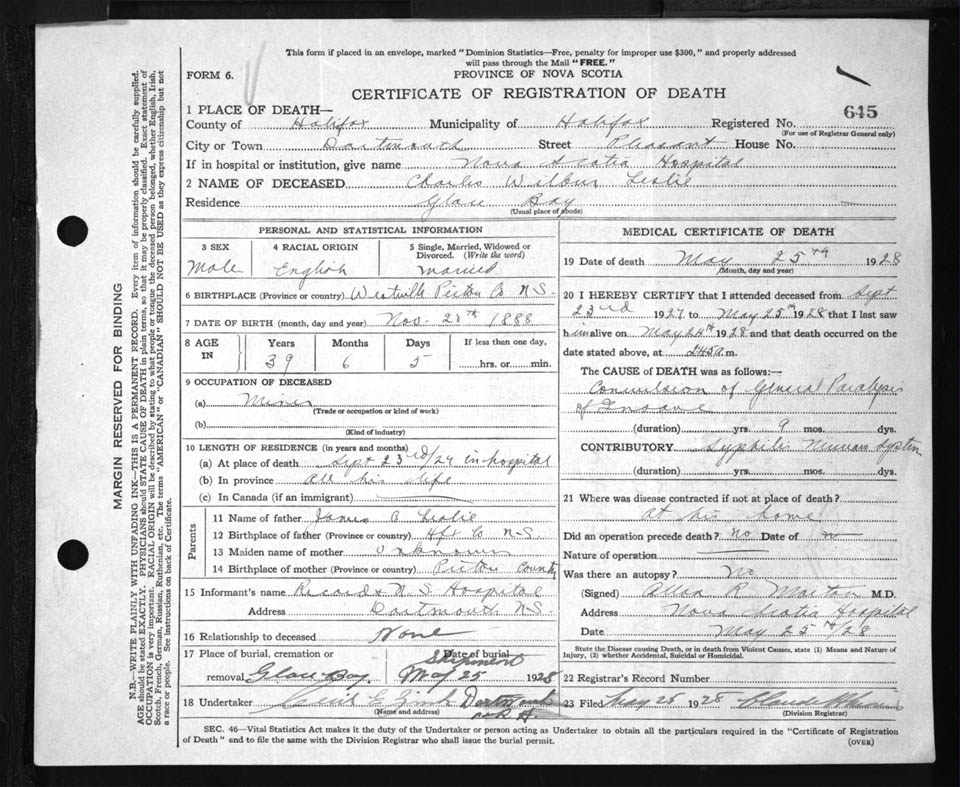 This form if placed in an envelope, marked "Dominion Statistics—Free, penalty for improper use $300," and properly addressed
will pass through the Mail "FREE."
FORM 6.
PROVINCE OF NOVA SCOTIA
CERTIFICATE OF REGISTRATION OF DEATH
1 PLACE OF DEATH—
County of Halifax Municipality of Halifax Registered No. 645
(For use of Registrar General only)
City or Town Dartmouth Street Pleasant House No.
If in hospital or institution, give name Nova Scotia Hospital
2 NAME OF DECEASED Charles Wilbur Leslie
Residence Glace Bay
(Usual place of abode)
PERSONAL AND STATISTICAL INFORMATION
3 SEX 4 RACIAL ORIGIN 5 Single, Married, Widowed or Divorced. (Write the word)
Male English Married
6 BIRTHPLACE (Province or country) Westville Pictou Co N.S.
7 DATE OF BIRTH (month, day and year) Nov. 20th 1888
8 AGE IN Years Months Days If less than one day,
39 6 5 hrs. or min.
9 OCCUPATION OF DECEASED
(a) Miner
(Trade or occupation or kind of work)
(b)
(Kind of industry)
10 LENGTH OF RESIDENCE (in years and months)
(a) At place of death Sept 23rd/27 in hospital
(b) In province All his life
(c) In Canada (if an immigrant)
Parents
11 Name of father James A Leslie
12 Birthplace of father (Province or country) Hfx Co N.S.
13 Maiden name of mother Unknown
14 Birthplace of mother (Province or country) Pictou County
15 Informant's name Records N.S. Hospital
Address Dartmouth N.S.
16 Relationship to deceased None
17 Place of burial, cremation or Date of burial
Shipment
removal Glace Bay. May 25 1928
18 Undertaker Dartmouth
(Name and address)
MEDICAL CERTIFICATE OF DEATH
19 Date of death May 25th 1928
(Month, day and year)
20 I HEREBY CERTIFY that I attended deceased from Sept
23rd 1927 to May 25th 1928 that I last saw
him alive on May 24th 1928 and that death occurred on the
date stated above, at m.
The CAUSE of DEATH was as follows:—
Convulsion of General Paralysis
of Insane
(duration) yrs. 9 mos. dys.
CONTRIBUTORY Syphilis Nervous System
(duration) yrs. mos. dys.
21 Where was disease contracted if not at place of death?
At his home
Did an operation precede death? No Date of
Nature of operation
Was there an autopsy? No
(Signed) Allan R. Morton M.D.
Address Nova Scotia Hospital
Date May 25th/28
State the Disease causing Death, or in death from Violent Causes, state (1) Means and Nature of
Injury, (2) whether Accidental, Suicidal or Homicidal.
22 Registrar's Record Number
23 Filed May 25 1928
(Division Registrar)
SEC. 46—Vital Statistics Act makes it the duty of the Undertaker or person acting as Undertaker to obtain all the particulars required in the "Certificate of Registration
of Death" and to file the same with the Division Registrar who shall issue the burial permit.
(OVER)
MARGIN RESERVED FOR BINDING
N.B.—WRITE PLAINLY WITH UNFADING INK—THIS IS A PERMANENT RECORD. Every item of information should be carefully supplied.
AGE should be stated EXACTLY. PHYSICIANS should STATE CAUSE OF DEATH in plain terms, so that it may be properly classified. Exact statement of
OCCUPATION is very important. RACIAL ORIGIN will be described by stating to what people or tongue the deceased person belonged, whether English, Irish,
Scotch, French, German, Russian, Ruthenian, etc. The terms "AMERICAN" or "CANADIAN" SHOULD NOT BE USED as they express citizenship but not
a race or people. See instructions on back of Certificate.